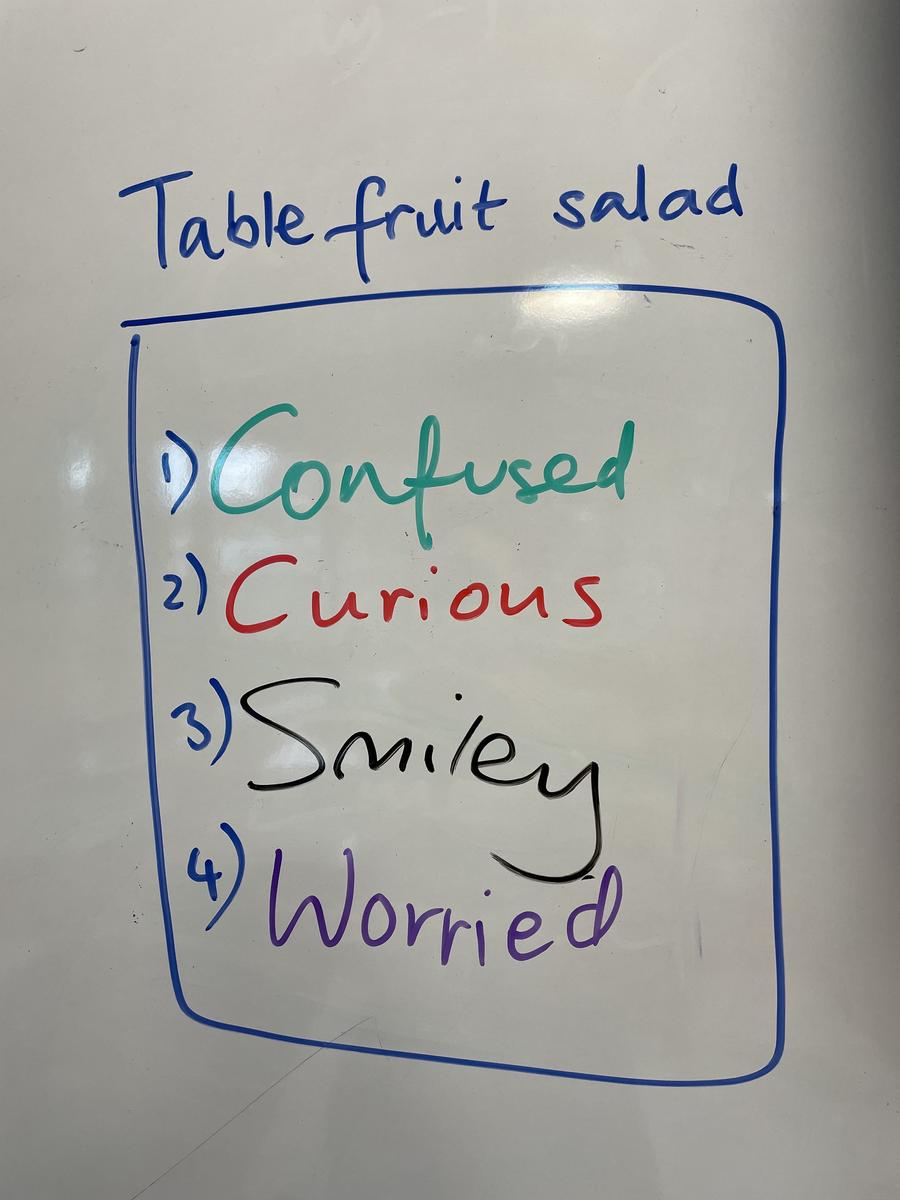 Table fruit salad
1) Confused
2) Curious
3) Smiley
4) Worried